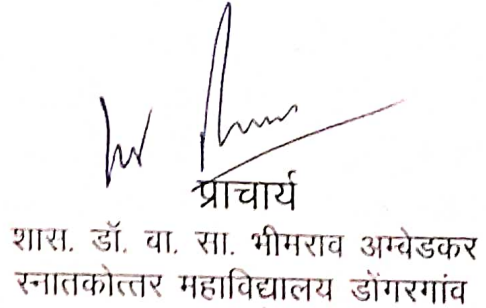 प्राचार्य
शास. डॉ. वा. सा. भीमराव अम्वेडकर
स्नातकोत्तर महाविद्यालय डोंगरगांव